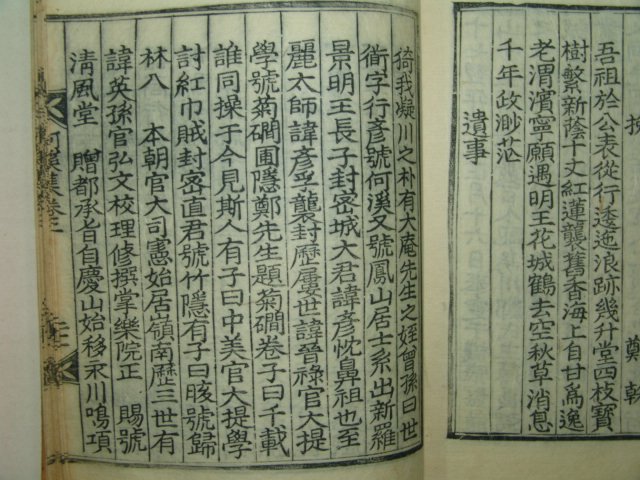 挽 鄭乾
吾祖於公表從行逶迤浪跡幾升堂四枝寶
樹繁新蔭十丈紅蓮襲舊香海上自甘爲逸
老渭濱寧願遇明王花城鶴去空秋草消息
千年政渺茫
遺事
猗我凝川之朴有大庵先生之姪曾孫曰世
衜字行彥號何溪又號鳳山居士系出新羅
景明王長子封密城大君諱彥忱鼻祖也至
麗太師諱彥孚襲封歷屢世諱晉祿官大提
學號菊磵圃隱鄭先生題菊磵卷子曰千載
誰同操于今見斯人有子曰中美官大提學
討紅巾賊封密直君號竹隱有子曰晐號歸
林八 本朝官大司憲始居嶺南歷三世有
諱英孫官弘文校理修撰掌樂院正 賜號
清風堂 贈都承旨自慶山始移永川鳴項
何溪集卷三